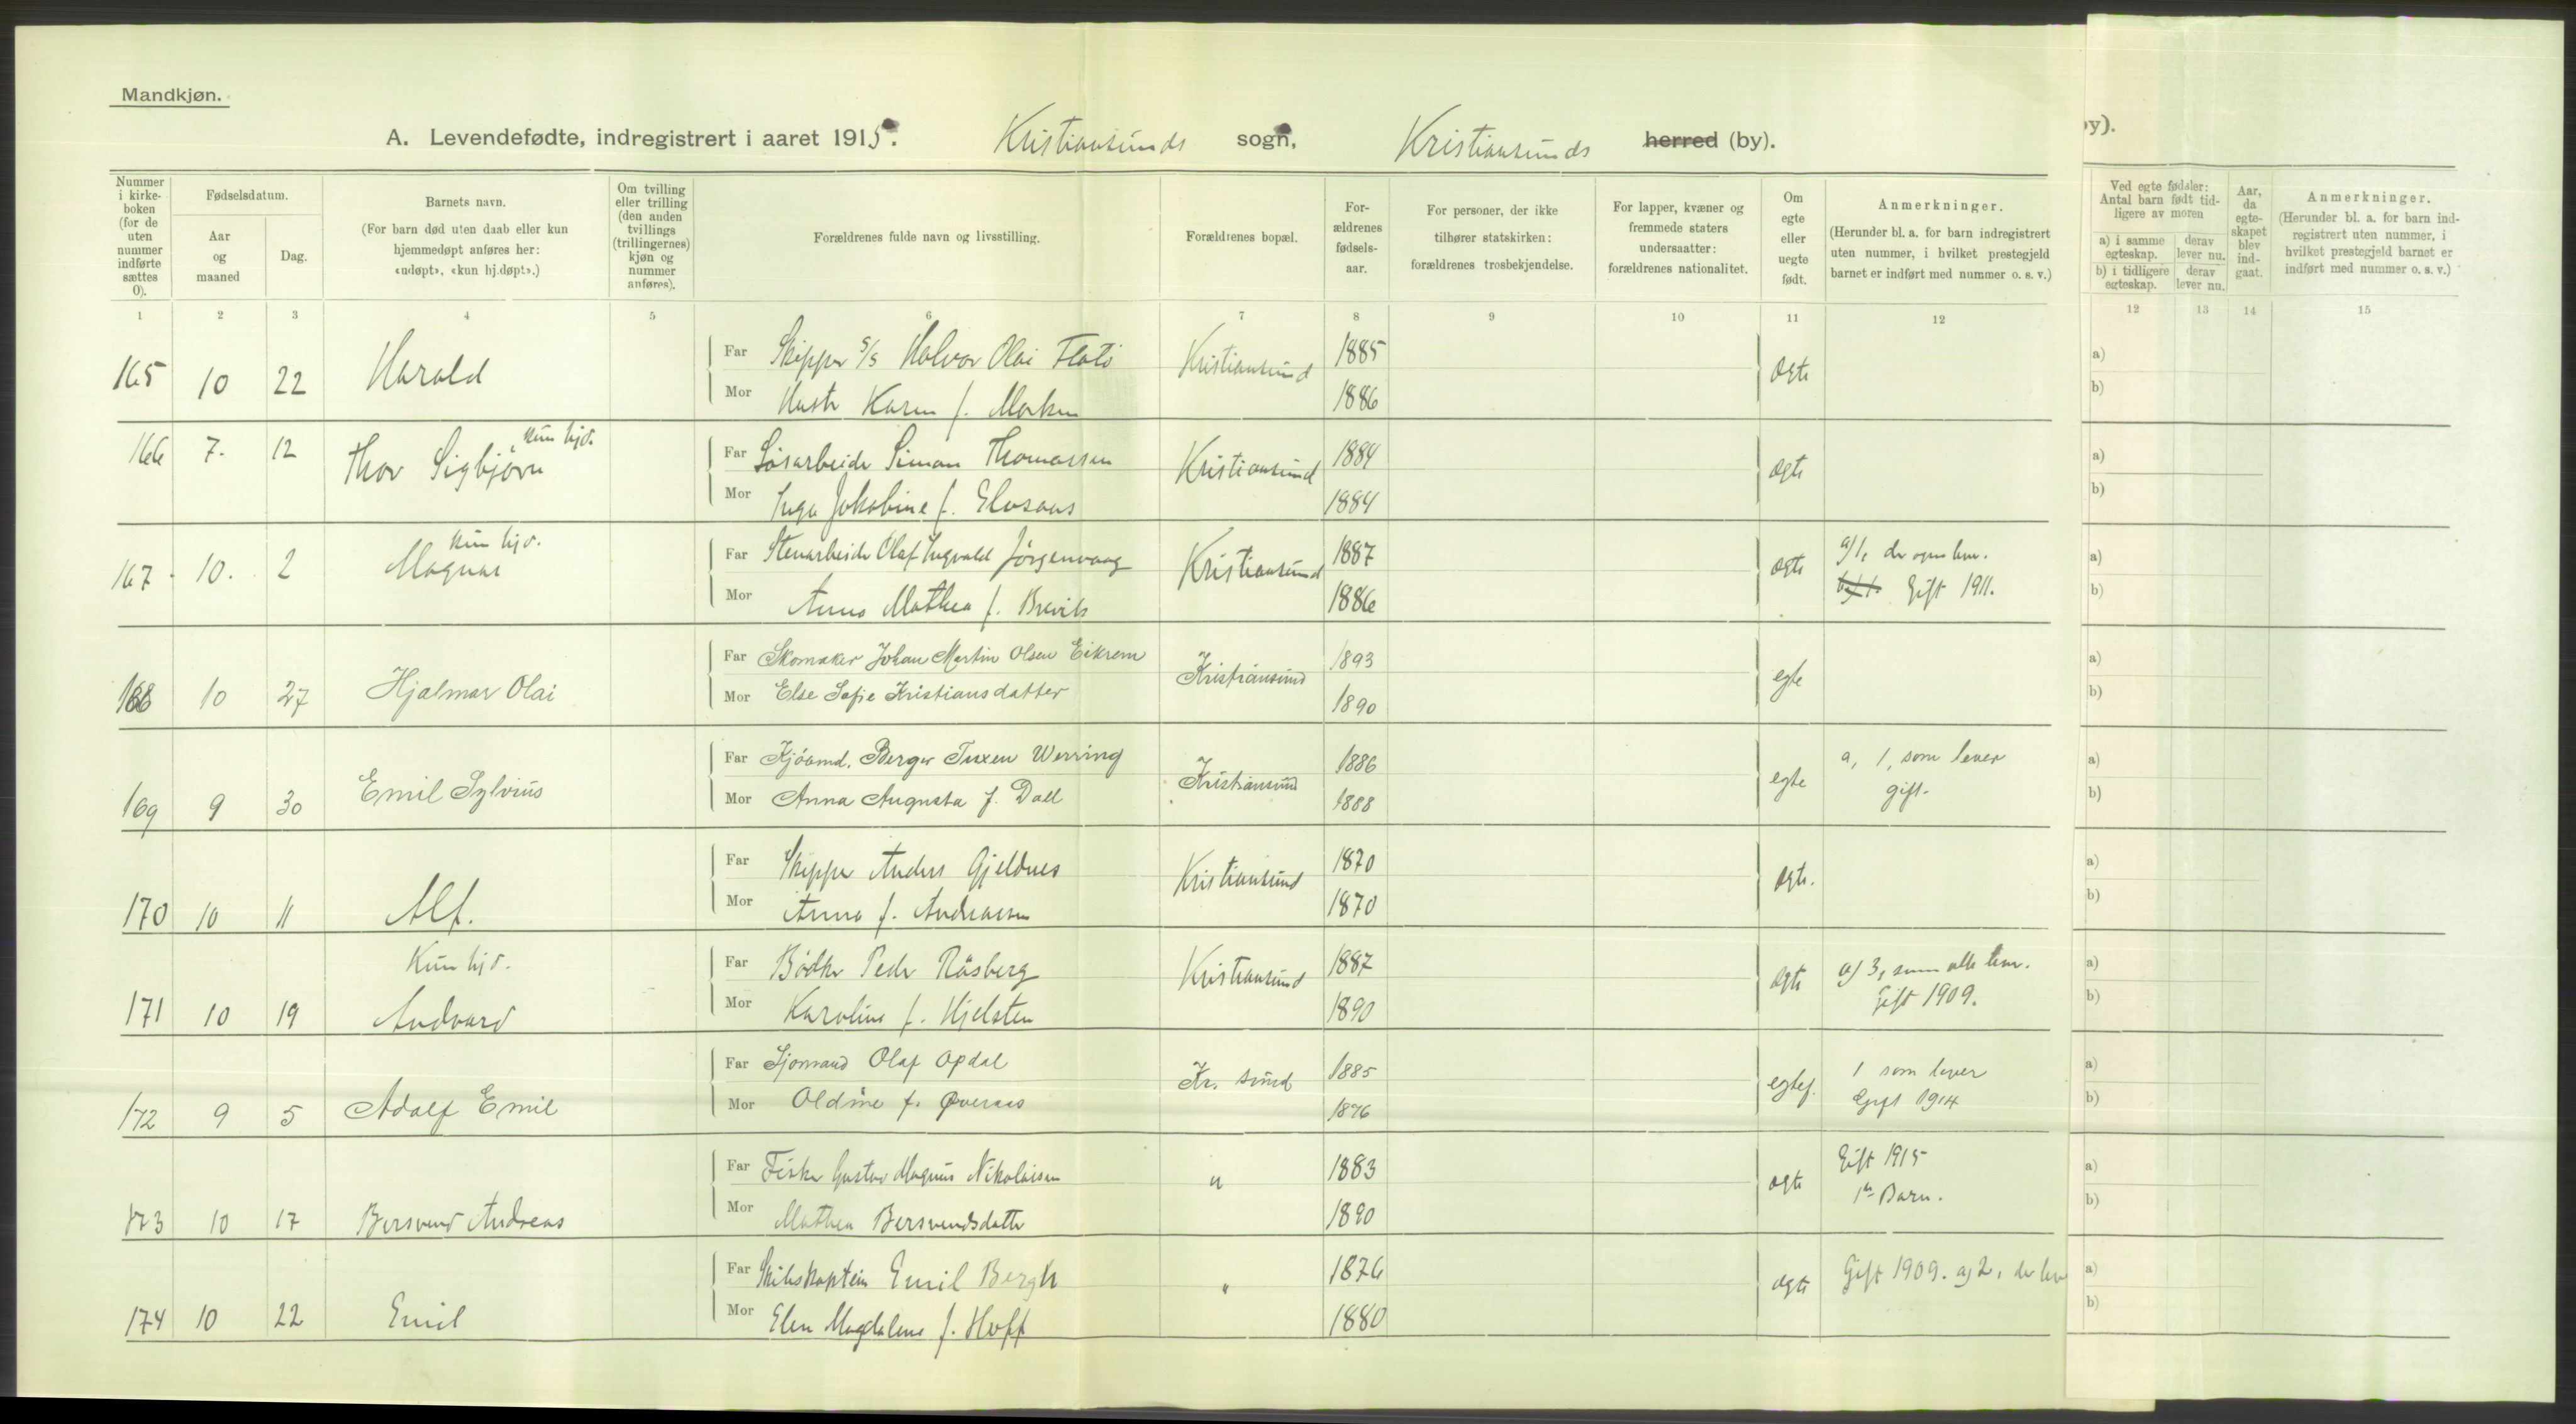 Mandkjøn.
A. Levendefødte, indregistrert i aaret 1915. Kristiansunds sogn, Kristiansunds herred (by).
Nummer i kirkeboken (for de uten nummer indførte sættes 0).
Fødselsdatum.
Aar og maaned
Dag.
Barnets navn.
(For barn død uten daab eller kun hjemmedøpt anføres her: «udøpt», «kun hj.døpt».)
Om tvilling eller trilling (den anden tvillings (trillingernes) kjøn og nummer anføres).
Forældrenes fulde navn og livsstilling.
Forældrenes bopæl.
Forældrenes fødselsaar.
For personer, der ikke tilhører statskirken: forældrenes trosbekjendelse.
For lapper, kvæner og fremmede staters undersaatter: forældrenes nationalitet.
Om egte eller uegte født.
Anmerkninger.
(Herunder bl. a. for barn indregistrert uten nummer, i hvilket prestegjeld barnet er indført med nummer o. s. v.)
1 2 3 4 5 6 7 8 9 10 11 12
165 10 22 Harald
Far Skipper S/S Halvor Olai Flatö Kristiansund 1885 ægte
Mor Hustr Karen f. 1886
166 7. 12 Thor Sigbjörn kun hjd.
Far Simon Thomassen Kristiansund 1884 ægte
Mor Inga Jakobine f. 1884
167 10. 2 Magnar kun hjd.
Far Stenarbeider Olaf Ingvald Jörgenvaag Kristiansund 1887 ægte
Mor Anna Mathea f. Brevik 1886
a/1, der ogsaa lever.
Gift 1911.
168 10 27 Hjalmar Olai
Far Skomaker Johan Martin Olsen Eikrem Kristiansund 1893 egte
Mor Else Sofie Kristiansdatter 1890
169 9 30 Emil Sylvius
Far Kjöbmd. Berger Tuxen Werring Kristiansund 1886 egte
Mor Anna Augusta f. Dall 1888
a, 1, som lever
gift.
170 10 11 Alf.
Far Skipper Anders Gjeldnes Kristiansund 1870 ægte.
Mor Anna f. Andreassen 1870
171 10 19 Kun hjd. Andvard
Far Bödker Peder Råsberg Kristiansund 1887 ægte
Mor Karoline f. Hjelsten 1890
a/ 3, som alle lever.
Gift 1909.
172 9 5 Adolf Emil
Far Sjömand Olaf Opdal Kr. sund 1885 egtef.
Mor Oldine f. Øveraas 1876
1 som lever
Gift 1914
173 10 17 Bersvend Andreas
Far Fisker Gustav Magnus Nikolaisen " 1883 ægte
Mor Mathea Bersvendsdatter 1890
Gift 1915
1ste Barn.
174 10 22 Emil
Far Skibskaptein Emil Bergh " 1876 ægte
Mor Elen Magdalene f. Hoff 1880
Gift 1909. a/2, der lev
by).
Ved egte fødsler: Antal barn født tidligere av moren
a) i samme egteskap. derav lever nu.
b) i tidligere egteskap. derav lever nu.
Aar, da egteskapet blev indgaat.
Anmerkninger.
(Herunder bl. a. for barn indregistrert uten nummer, i hvilket prestegjeld barnet er indført med nummer o. s. v.)
12 13 14 15
a)
b)
a)
b)
a)
b)
a)
b)
a)
b)
a)
b)
a)
b)
a)
b)
a)
b)
a)
b)